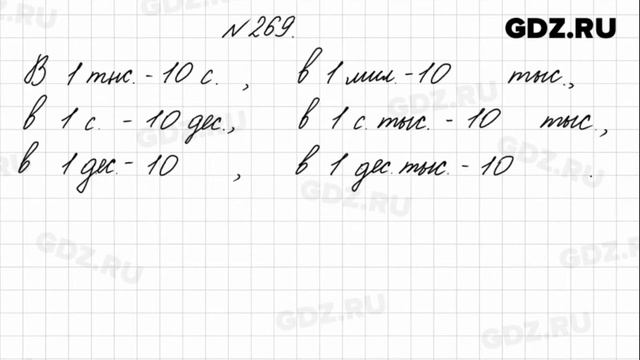 №269.
GDZ.RU
В 1 тыс. - 10 с. , в 1 мил. - 10 тыс.,
в 1 с. - 10 дес., в 1 с. тыс. - 10 тыс.,
в 1 дес. - 10 , в 1 дес. тыс. - 10 .
GDZ.RU
GDZ.RU
GDZ.RU
GDZ.RU
GDZ.RU
GDZ.RU
GDZ.RU